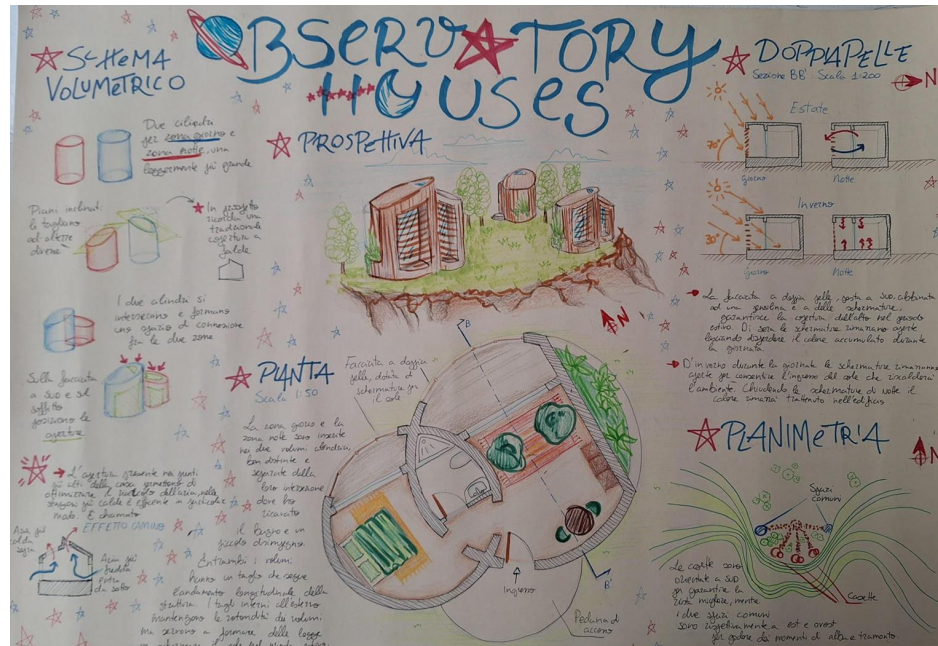 OBSERVATORY
HOUSES
SCHEMA
VOLUMETRICO
Due cilindri
per zona giorno e
zona notte, una
leggermente più grande
Piani inclinati
li tagliano
ad altezze
diverse
In progetto
ricorda una
tradizionale
copertura a
falde
I due cilindri si
intersecano e formano
uno spazio di connessione
fra le due zone
Sulla facciata
a sud e sul
soffitto
posiziono le
aperture
L'apertura presente nei punti
più alti della casa permettono di
ottimizzare il ricircolo dell'aria, nelle
stagioni più calde è efficiente in particolar
modo. È chiamato
EFFETTO CAMINO
Aria più
calda
Aria più
fredda
entra
da sotto
PROSPETTIVA
N
PIANTA
Scala 1:50
Facciata a doppia
pelle, dotata di
schermature per
il sole
La zona giorno e la
zona notte sono inserite
nei due volumi cilindrici
ben distinte e
separate dalla
loro intersezione
dove ho
ricavato
il bagno e un
piccolo disimpegno.
Entrambi i volumi
hanno un taglio che segue
l'andamento longitudinale della
struttura. I tagli interni all'esterno
mantengono la rotondità dei volumi
ma servono a formare delle logge
B
B'
Ingresso
Pedana di
accesso
DOPPIAPELLE
Sezione BB' Scala 1:200
N
Estate
70°
Giorno
Notte
Inverno
30°
Giorno
Notte
La facciata a doppia pelle, posta a sud, abbinata
ad una pensilina e a delle schermature,
garantisce la copertura dall'alto nel periodo
estivo. Di sera le schermature rimarranno aperte
lasciando disperdere il calore accumulato durante
la giornata.
D'inverno durante la giornata le schermature rimarranno
aperte per consentire l'ingresso del sole che riscalderà
l'ambiente. Chiudendo le schermature di notte il
calore rimarrà trattenuto nell'edificio
PLANIMETRIA
N
Spazi
comuni
Casette
Le casette sono
orientate a sud
per garantire la
vista migliore, mentre
i due spazi comuni
sono rispettivamente a est e ovest
per godere dei momenti di alba e tramonto.